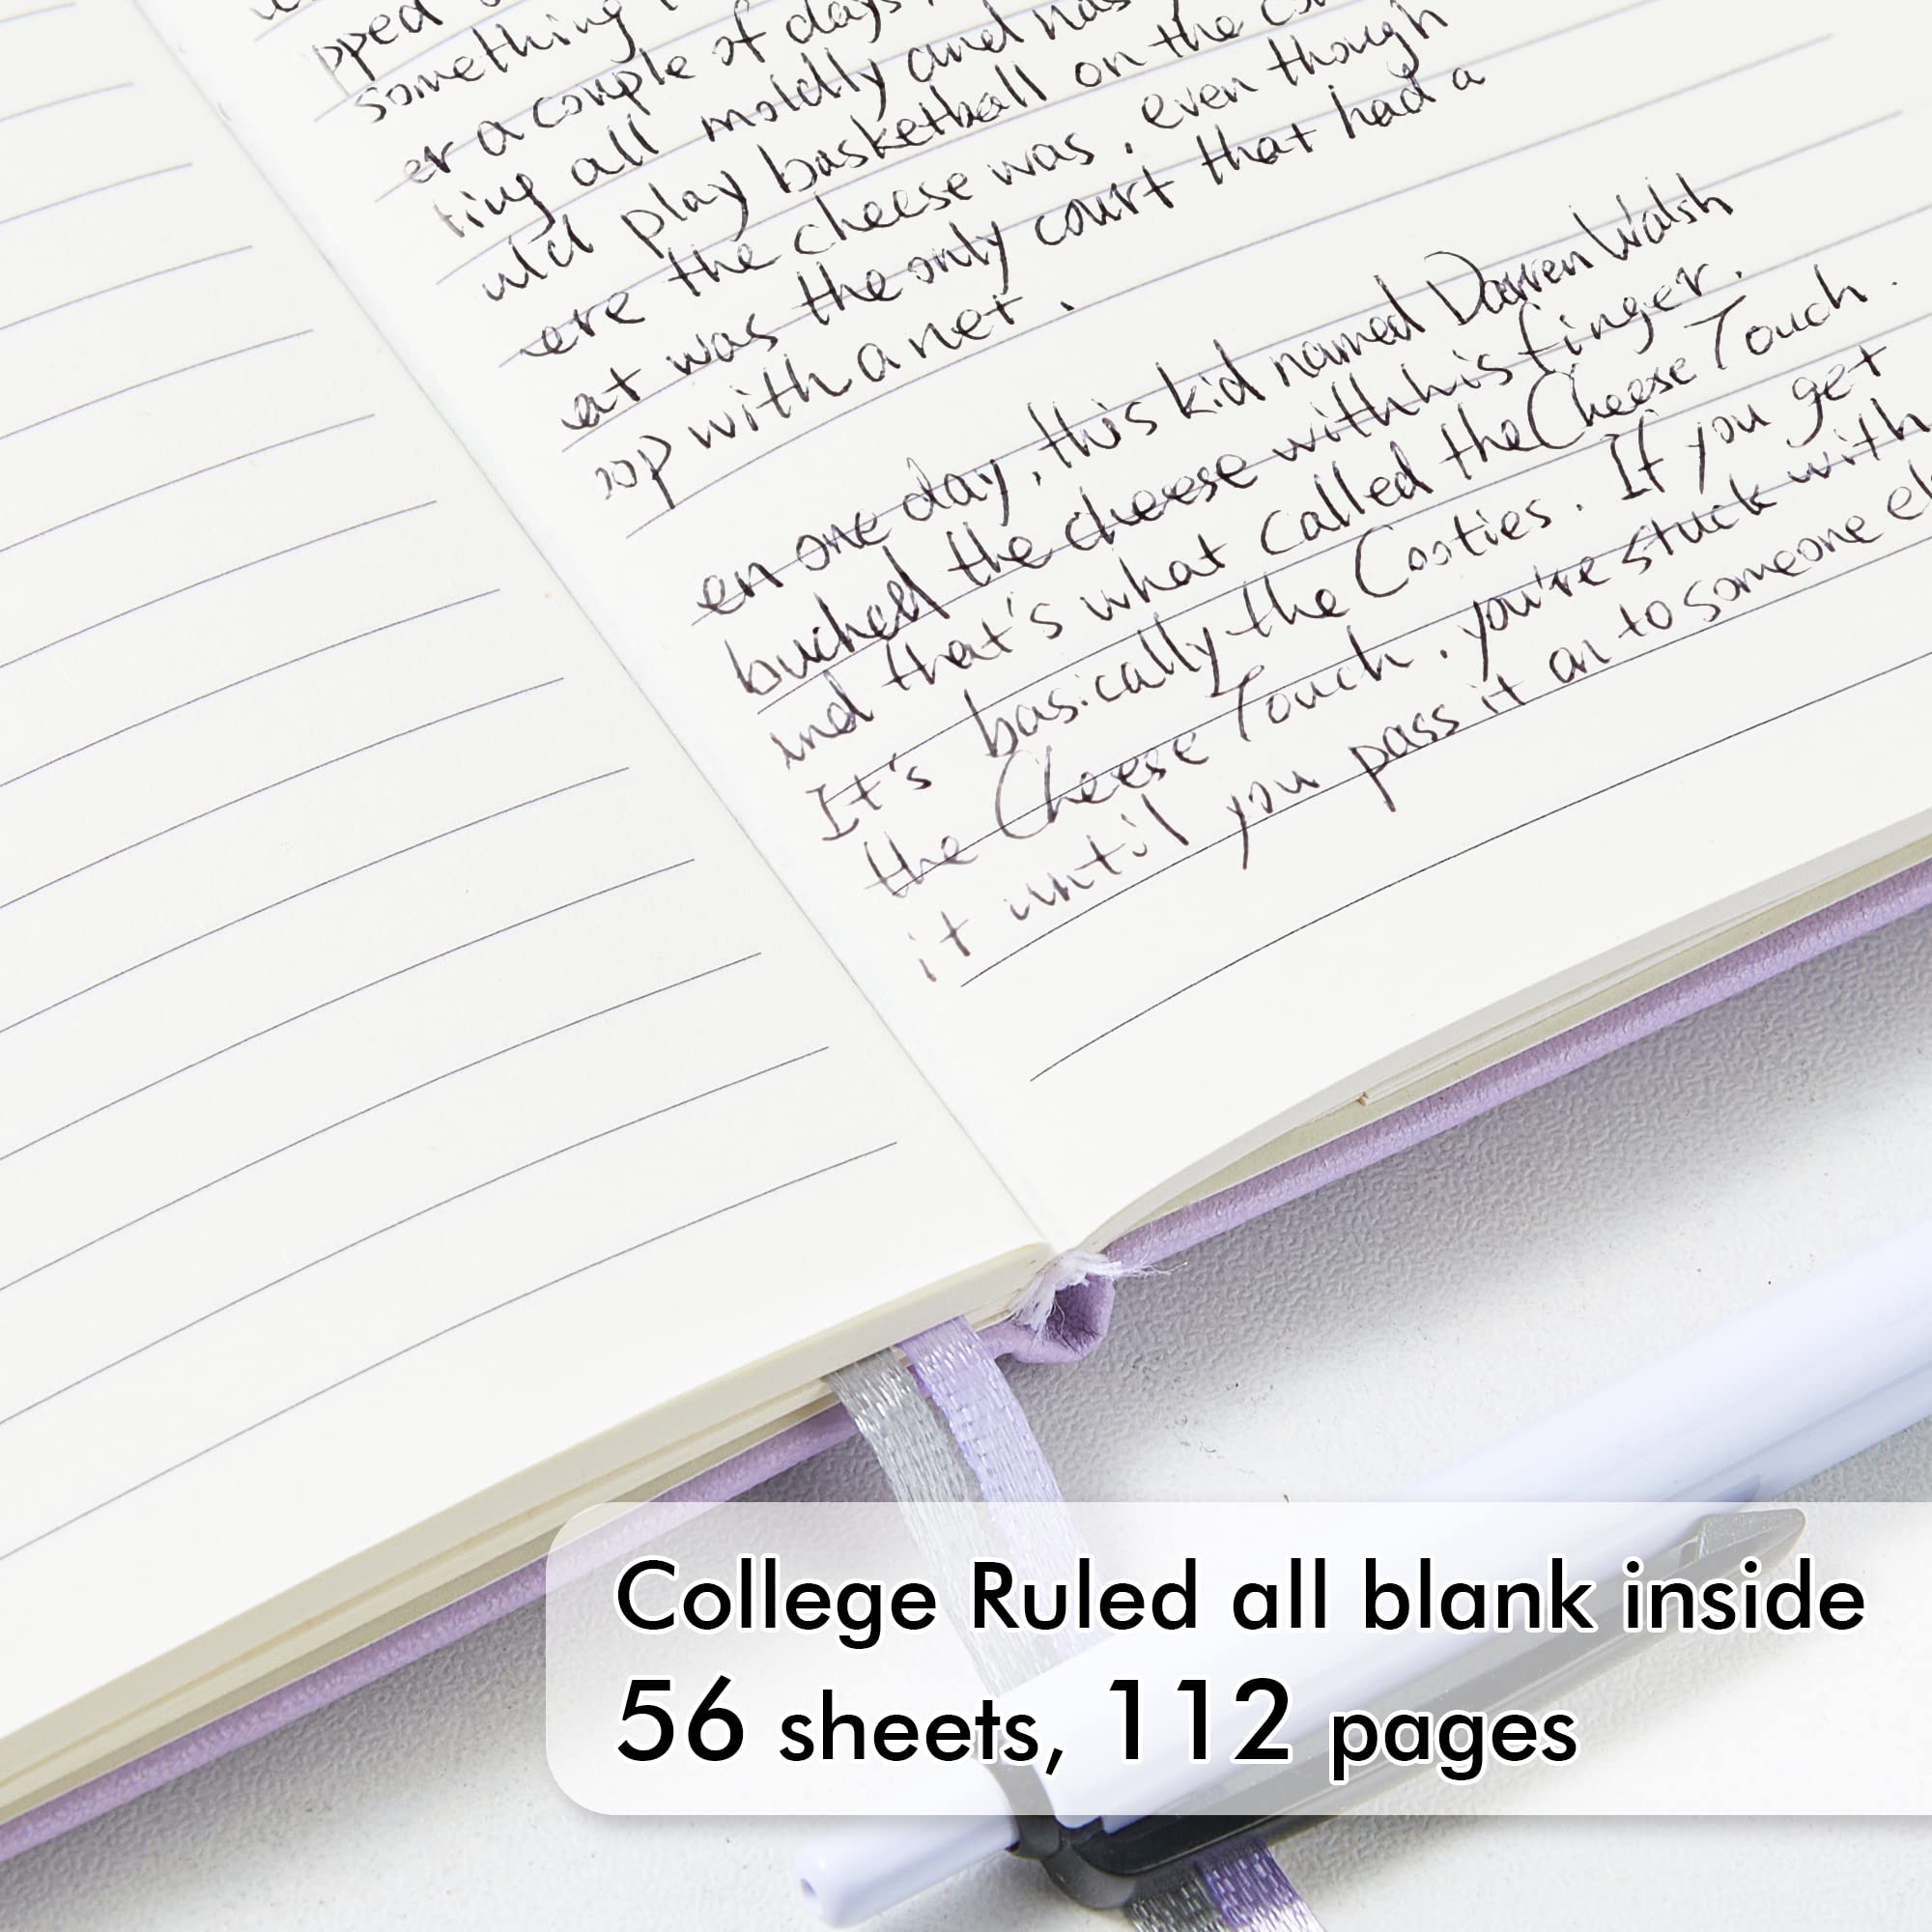 pped
something
er a couple of days
ting all moldly and nas
uld play basketball on the co
ere the cheese was, even though
at was the only court that had a
oop with a net.
en one day, this kid named Darren Walsh
buched the cheese with his finger.
ind that's what called the Cheese Touch.
It's basically the Cooties. If you get
the Cheese Touch, you're stuck with
it until you pass it on to someone el
College Ruled all blank inside
56 sheets, 112 pages